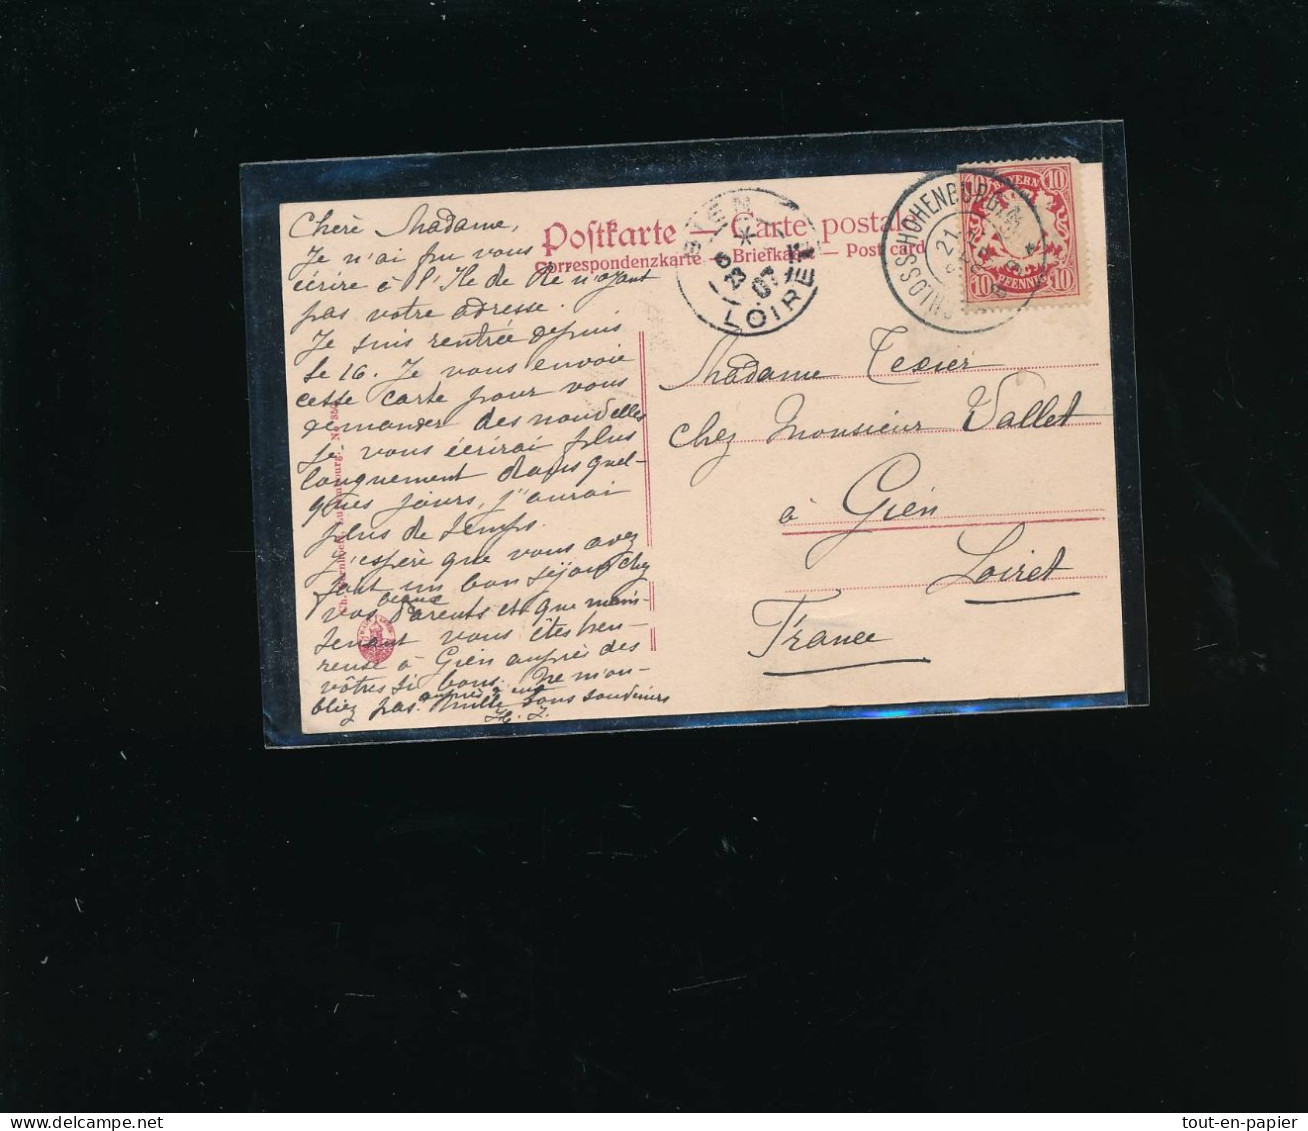 Postkarte — Carte postale
Correspondenzkarte — Briefkarte — Post card
GIEN
LOIRET
23
07
SCHLOSSHOHENBURG
21
BAYERN
10 10
10 PFENNIG 10
Chère Madame,
Je n'ai pu vous
écrire à l'Ile de Ré n'ayant
pas votre adresse.
Je suis rentrée depuis
le 16. Je vous envoie
cette carte pour vous
demander des nouvelles
Je vous écrirai plus
longuement dans quel-
ques jours, j'aurai
plus de temps.
J'espère que vous avez
fait un bon séjour chez
vos beaux Parents et que main-
tenant vous êtes heu-
reuse à Gien auprès des
vôtres si bons. Ne m'ou-
bliez pas auprès d'eux. Mille bons souvenirs
Madame Texier
chez Monsieur Vallet
à Gien
Loiret
France
Ch. Bernhoeft, Luxembourg. No
tout-en-papier